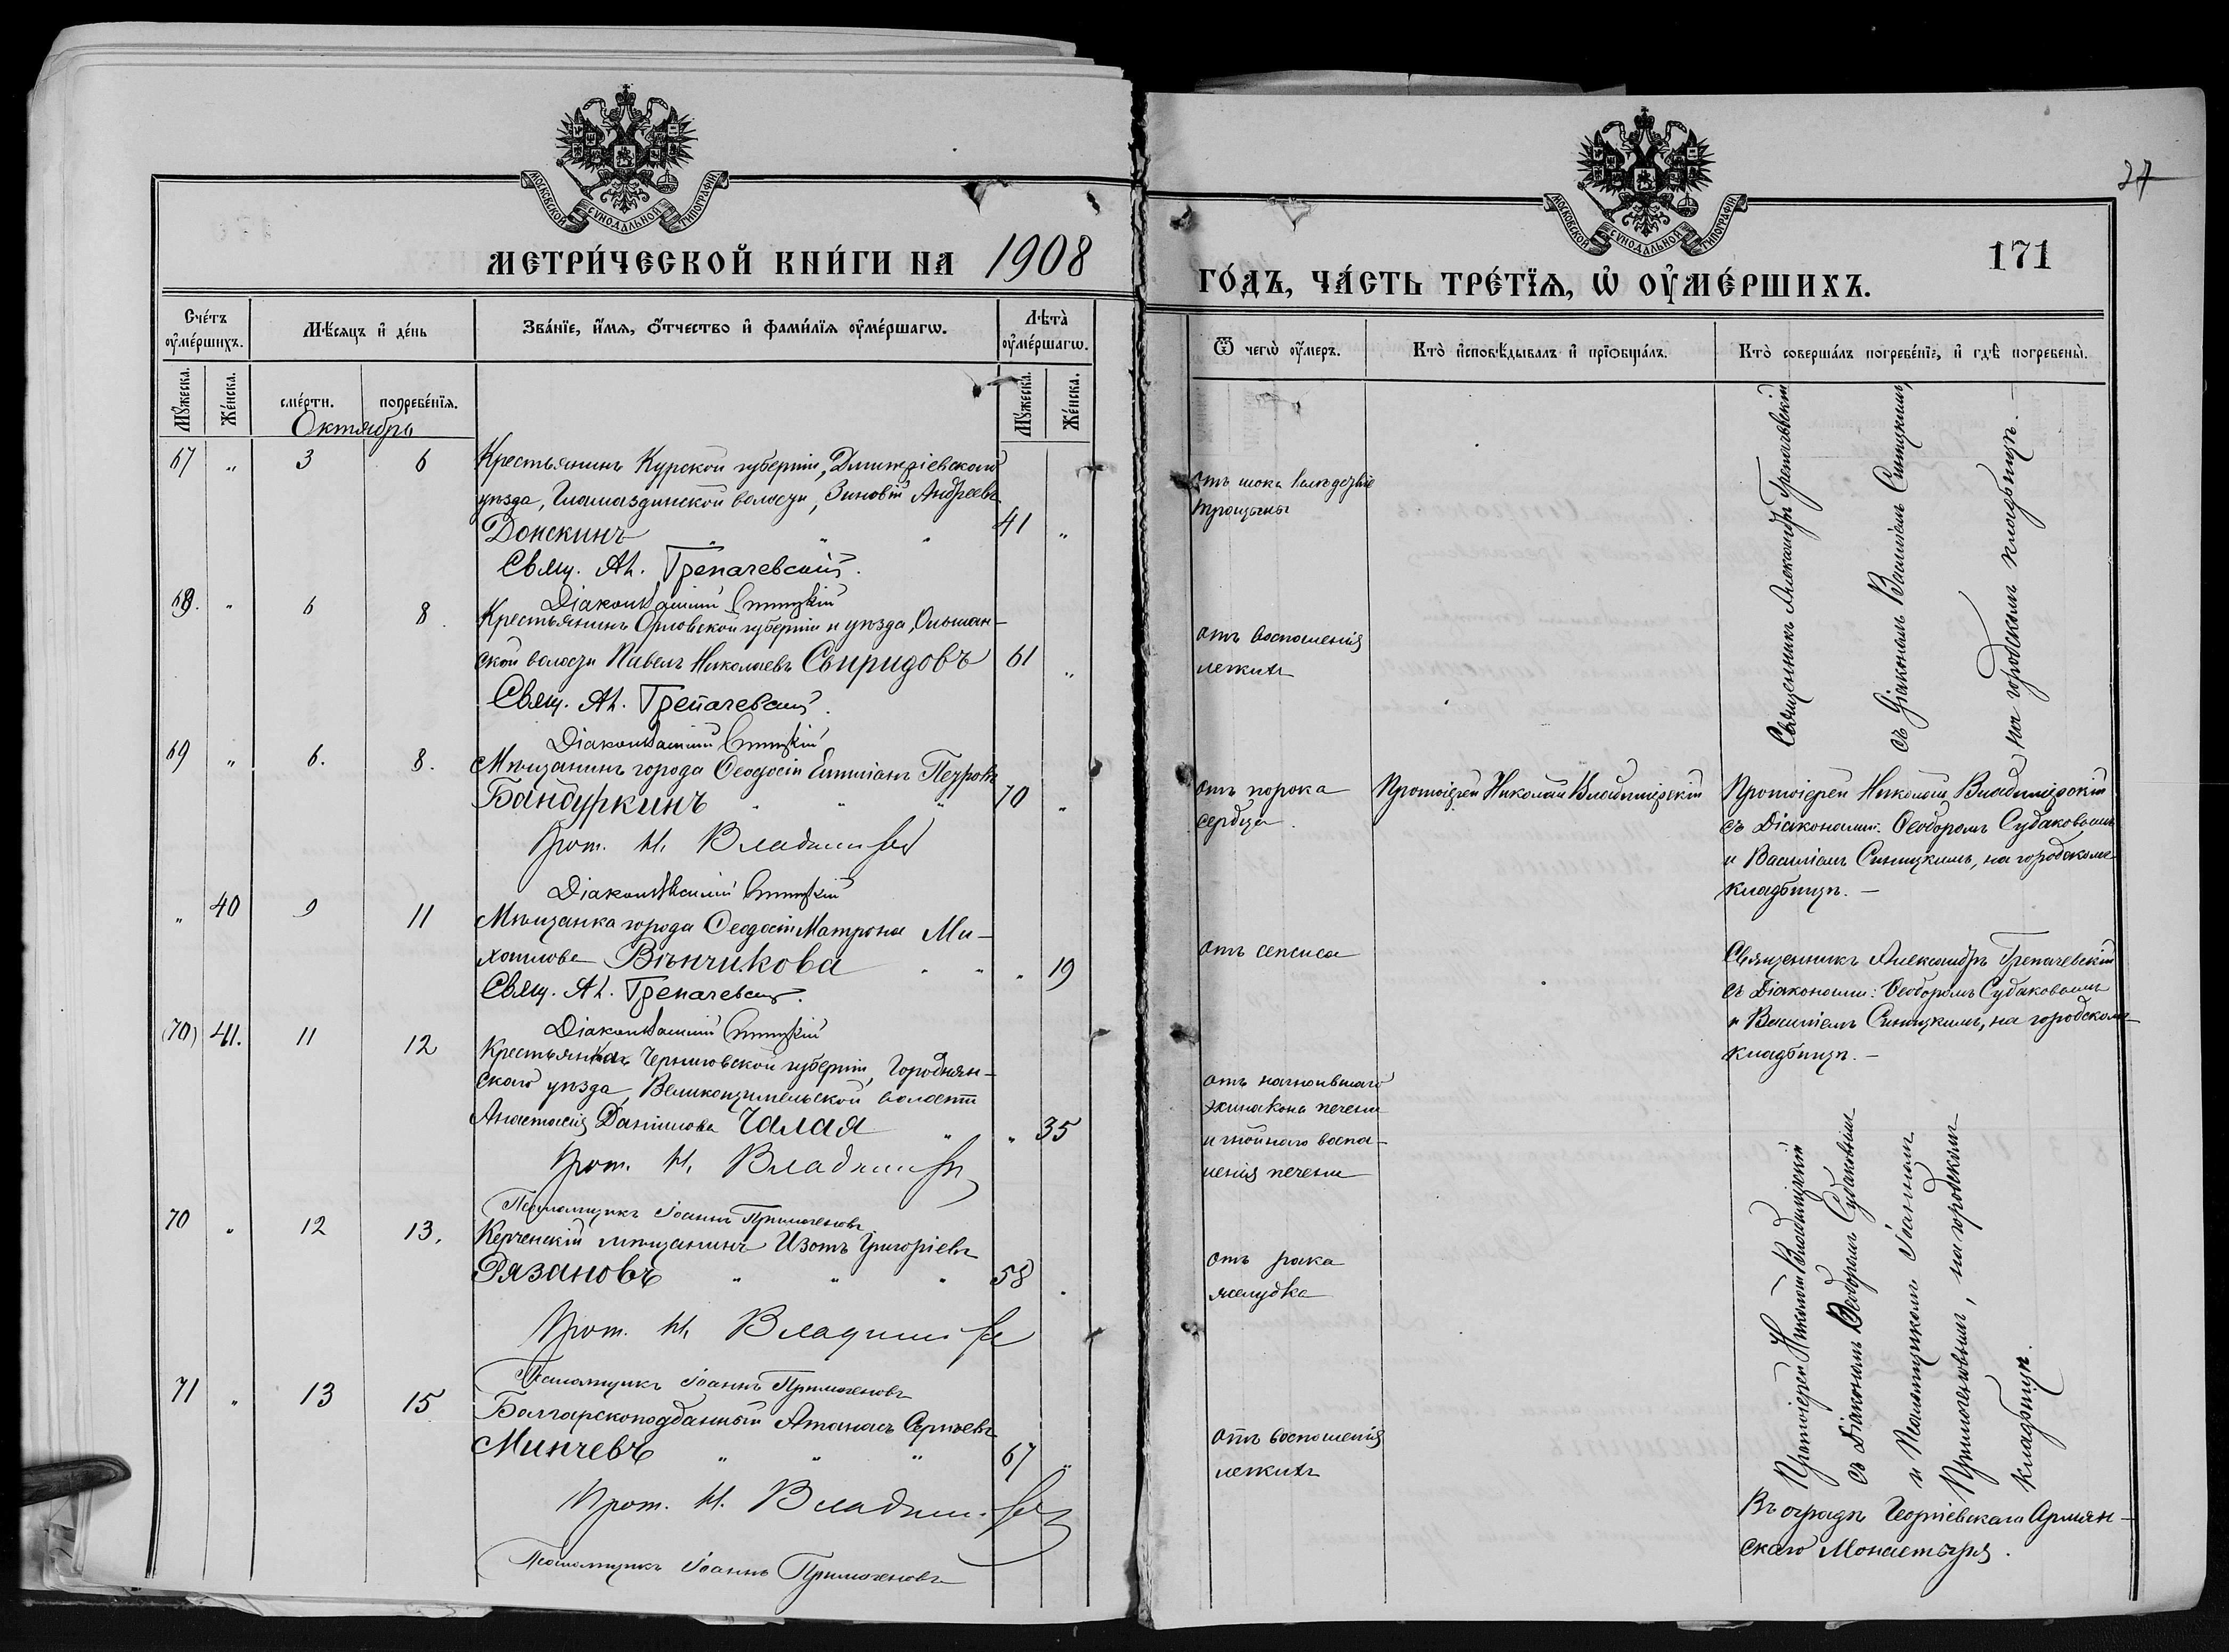 МОСКОВСКОЙ СѴНОДАЛЬНОЙ ТИПОГРАФІИ
МЕТРИ́ЧЕСКОЙ КНИ́ГИ НА 1908
Сче́тъ ᲂу҆ме́ршихъ.
Мѣ́сяцъ и҆ де́нь
Зва́нїе, и҆́мя, ѻ҆́тчество и҆ фами́лїя ᲂу҆ме́ршагѡ.
Лѣта̀ ᲂу҆ме́ршагѡ.
Мꙋ́жеска.
Же́нска.
сме́рти.
погребе́нїя.
Мꙋ́жеска.
Же́нска.
Октябрь
67 " 3 6 Крестьянинъ Курской губерніи, Дмитріевскаго
уѣзда, волости, Зиновій Андреевъ
Донскинъ " " " 41 "
Свящ. Ал. Трепачевскій.
Діаконъ Василій Синицкій
68. " 6 8. Крестьянинъ Орловской губерніи и уѣзда, Ольшан-
ской волости Павелъ Николаевъ Свиридовъ 61 "
Свящ. Ал. Трепачевскій.
Діаконъ Василій Синицкій
69 " 6. 8. Мѣщанинъ города Ѳеодосіи Емиліанъ Петровъ
Бандуркинъ " " " 70 "
Прот. Н. Владимірскій
Діаконъ Василій Синицкій
" 40 9 11 Мѣщанка города Ѳеодосіи Матрона Ми-
хаилова Вѣнчикова " " " 19
Свящ. Ал. Трепачевскій.
Діаконъ Василій Синицкій
(70) 41. 11 12 Крестьянка Черниговской губерніи, Городнян-
скаго уѣзда, волости
Анастасія Даніилова Чалая " " 35
Прот. Н. Владимірскій
Псаломщикъ Іоаннъ Примогеновъ
70 " 12 13. Керченскій мѣщанинъ Изотъ Григоріевъ
Рязановъ " " " 58 "
Прот. Н. Владимірскій
Псаломщикъ Іоаннъ Примогеновъ
71 " 13 15 Болгарскоподданный Атанасъ Сергѣевъ
Минчевъ " " " 67 "
Прот. Н. Владимірскій
Псаломщикъ Іоаннъ Примогеновъ
27
171
МОСКОВСКОЙ СѴНОДАЛЬНОЙ ТИПОГРАФІИ
ГО́ДЪ, ЧА́СТЬ ТРЕ́ТЇѦ, Ѡ҆ ОУ҆МЕ́РШИХЪ.
Ѿ чегѡ̀ ᲂу҆́меръ.
Кто̀ и҆сповѣ́дывалъ и҆ прїѡбща́лъ.
Кто̀ соверша́лъ погребе́нїе, и҆ гдѣ̀ погребены̀.
отъ шока вслѣдствіе
травмы
Священникъ Александръ Трепачевскій
съ Діакономъ Василіемъ Синицкимъ,
на городскомъ кладбищѣ. —
отъ воспаленія
легкихъ
отъ порока
сердца.
Протоіерей Николай Владимірскій
Протоіерей Николай Владимірскій
съ Діаконами: Ѳеодоромъ Судаковымъ
и Василіемъ Синицкимъ, на городскомъ
кладбищѣ. —
отъ сепсиса
Священникъ Александръ Трепачевскій
съ Діаконами: Ѳеодоромъ Судаковымъ
и Василіемъ Синицкимъ, на городскомъ
кладбищѣ. —
отъ нагноившаго
эхинакона печени
и гнойнаго воспа-
ленія печени
отъ рака
желудка
Протоіерей Николай Владимірскій
съ Діакономъ Ѳеодоромъ Судаковымъ
и Псаломщикомъ Іоанномъ
Примогеновымъ, на городскомъ
кладбищѣ.
отъ воспаленія
легкихъ
Въ оградѣ Георгіевскаго Армян-
скаго Монастыря.